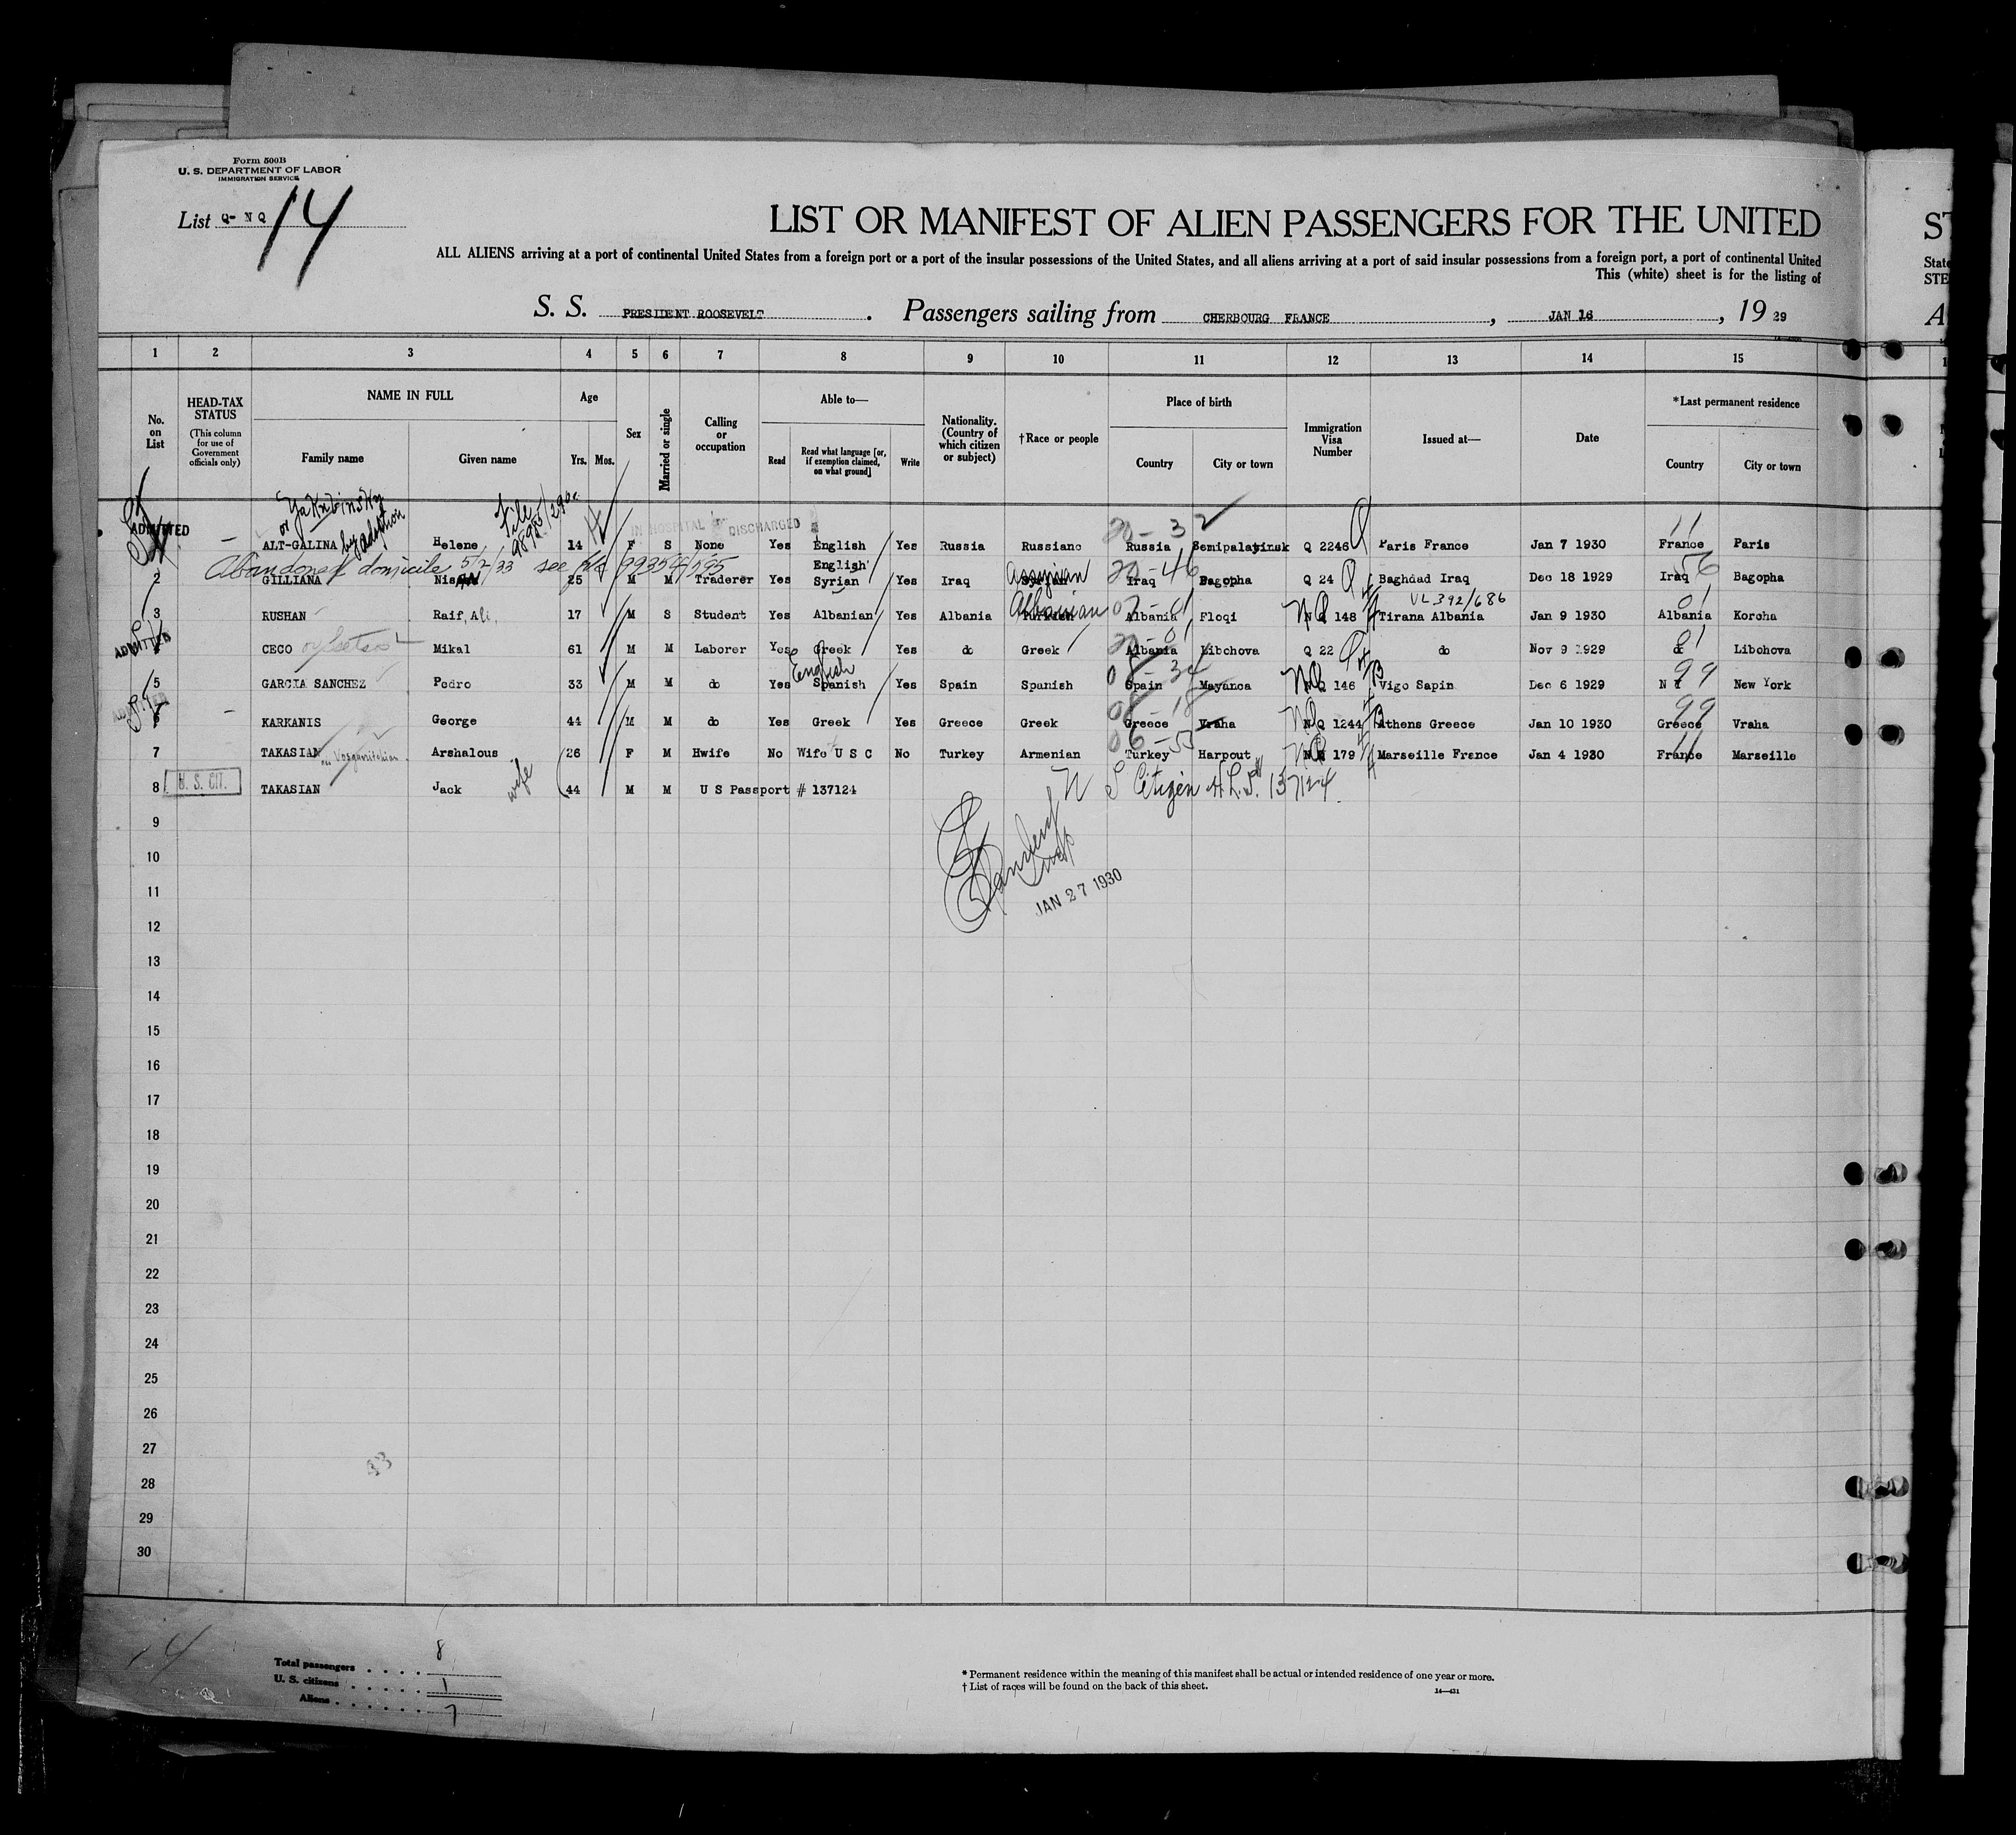 Form 500B
U. S. DEPARTMENT OF LABOR
IMMIGRATION SERVICE
List Q- N Q 14
LIST OR MANIFEST OF ALIEN PASSENGERS FOR THE UNITED
ALL ALIENS arriving at a port of continental United States from a foreign port or a port of the insular possessions of the United States, and all aliens arriving at a port of said insular possessions from a foreign port, a port of continental United
This (white) sheet is for the listing of
S. S. PRESIDENT ROOSEVELT . Passengers sailing from CHERBOURG FRANCE , JAN 16 , 19 29
1 2 3 4 5 6 7 8 9 10 11 12 13 14 15
No. on List
HEAD-TAX STATUS (This column for use of Government officials only)
NAME IN FULL
Family name Given name
Age
Yrs. Mos.
Sex
Married or single
Calling or occupation
Able to—
Read Read what language [or, if exemption claimed, on what ground] Write
Nationality. (Country of which citizen or subject)
†Race or people
Place of birth
Country City or town
Immigration Visa Number
Issued at—
Date
*Last permanent residence
Country City or town
or Yakubinsky by adoption
File
IN HOSPITAL DISCHARGED
20-32
11
ADMITTED
ALT-GALINA Helene 14 F S None Yes English Yes Russia Russian Russia Semipalatinsk Q 2246 Paris France Jan 7 1930 France Paris
Abandoned domicile 5/2/33 see file 99354/595
English
Assyrian
20-46
56
2 GILLIANA Nisan 25 M M Traderer Yes Syrian Yes Iraq Iraq Bagopha Q 24 Baghdad Iraq Dec 18 1929 Iraq Bagopha
VL 392/686
Albanian
01
3 RUSHAN Raif, Ali, 17 M S Student Yes Albanian Yes Albania Turkish Albania Floqi N Q 148 Tirana Albania Jan 9 1930 Albania Korcha
ADMITTED
01
CECO Mikal 61 M M Laborer Yes Greek Yes do Greek Albania Libchova Q 22 do Nov 9 1929 do Libohova
English
08-34
99
5 GARCIA SANCHEZ Pedro 33 M M do Yes Spanish Yes Spain Spanish Spain Mayanca N Q 146 Vigo Sapin Dec 6 1929 N Y New York
ADMITTED
08-18
99
6 KARKANIS George 44 M M do Yes Greek Yes Greece Greek Greece Vraha N Q 1244 Athens Greece Jan 10 1930 Greece Vraha
06-55
11
7 TAKASIAN Arshalous 26 F M Hwife No Wife U S C No Turkey Armenian Turkey Harpout 179 Marseille France Jan 4 1930 France Marseille
wife
8 U. S. CIT. TAKASIAN Jack 44 M M U S Passport # 137124 U S Citizen 137124
JAN 27 1930
9
10
11
12
13
14
15
16
17
18
19
20
21
22
23
24
25
26
27
33
28
29
30
14
Total passengers . . . . 8
U. S. citizens . . . . . 1
Aliens . . . . . . 7
* Permanent residence within the meaning of this manifest shall be actual or intended residence of one year or more.
† List of races will be found on the back of this sheet.
14—431